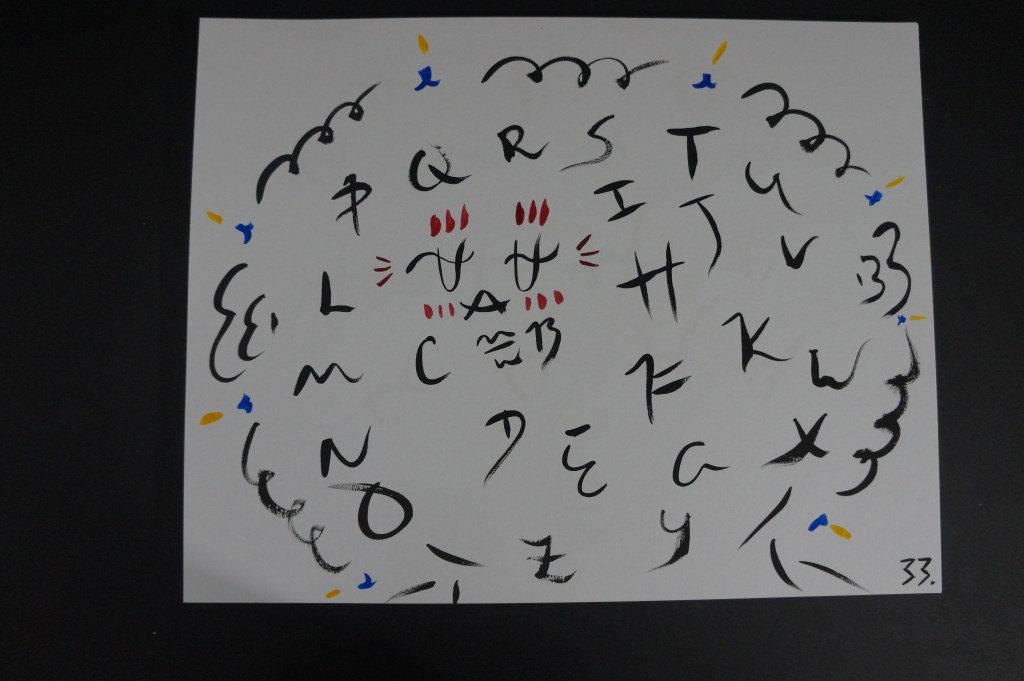 Q R S T
P I J U
H V
L A
C B K W
M F
D
N E G X
O Y
Z
33.